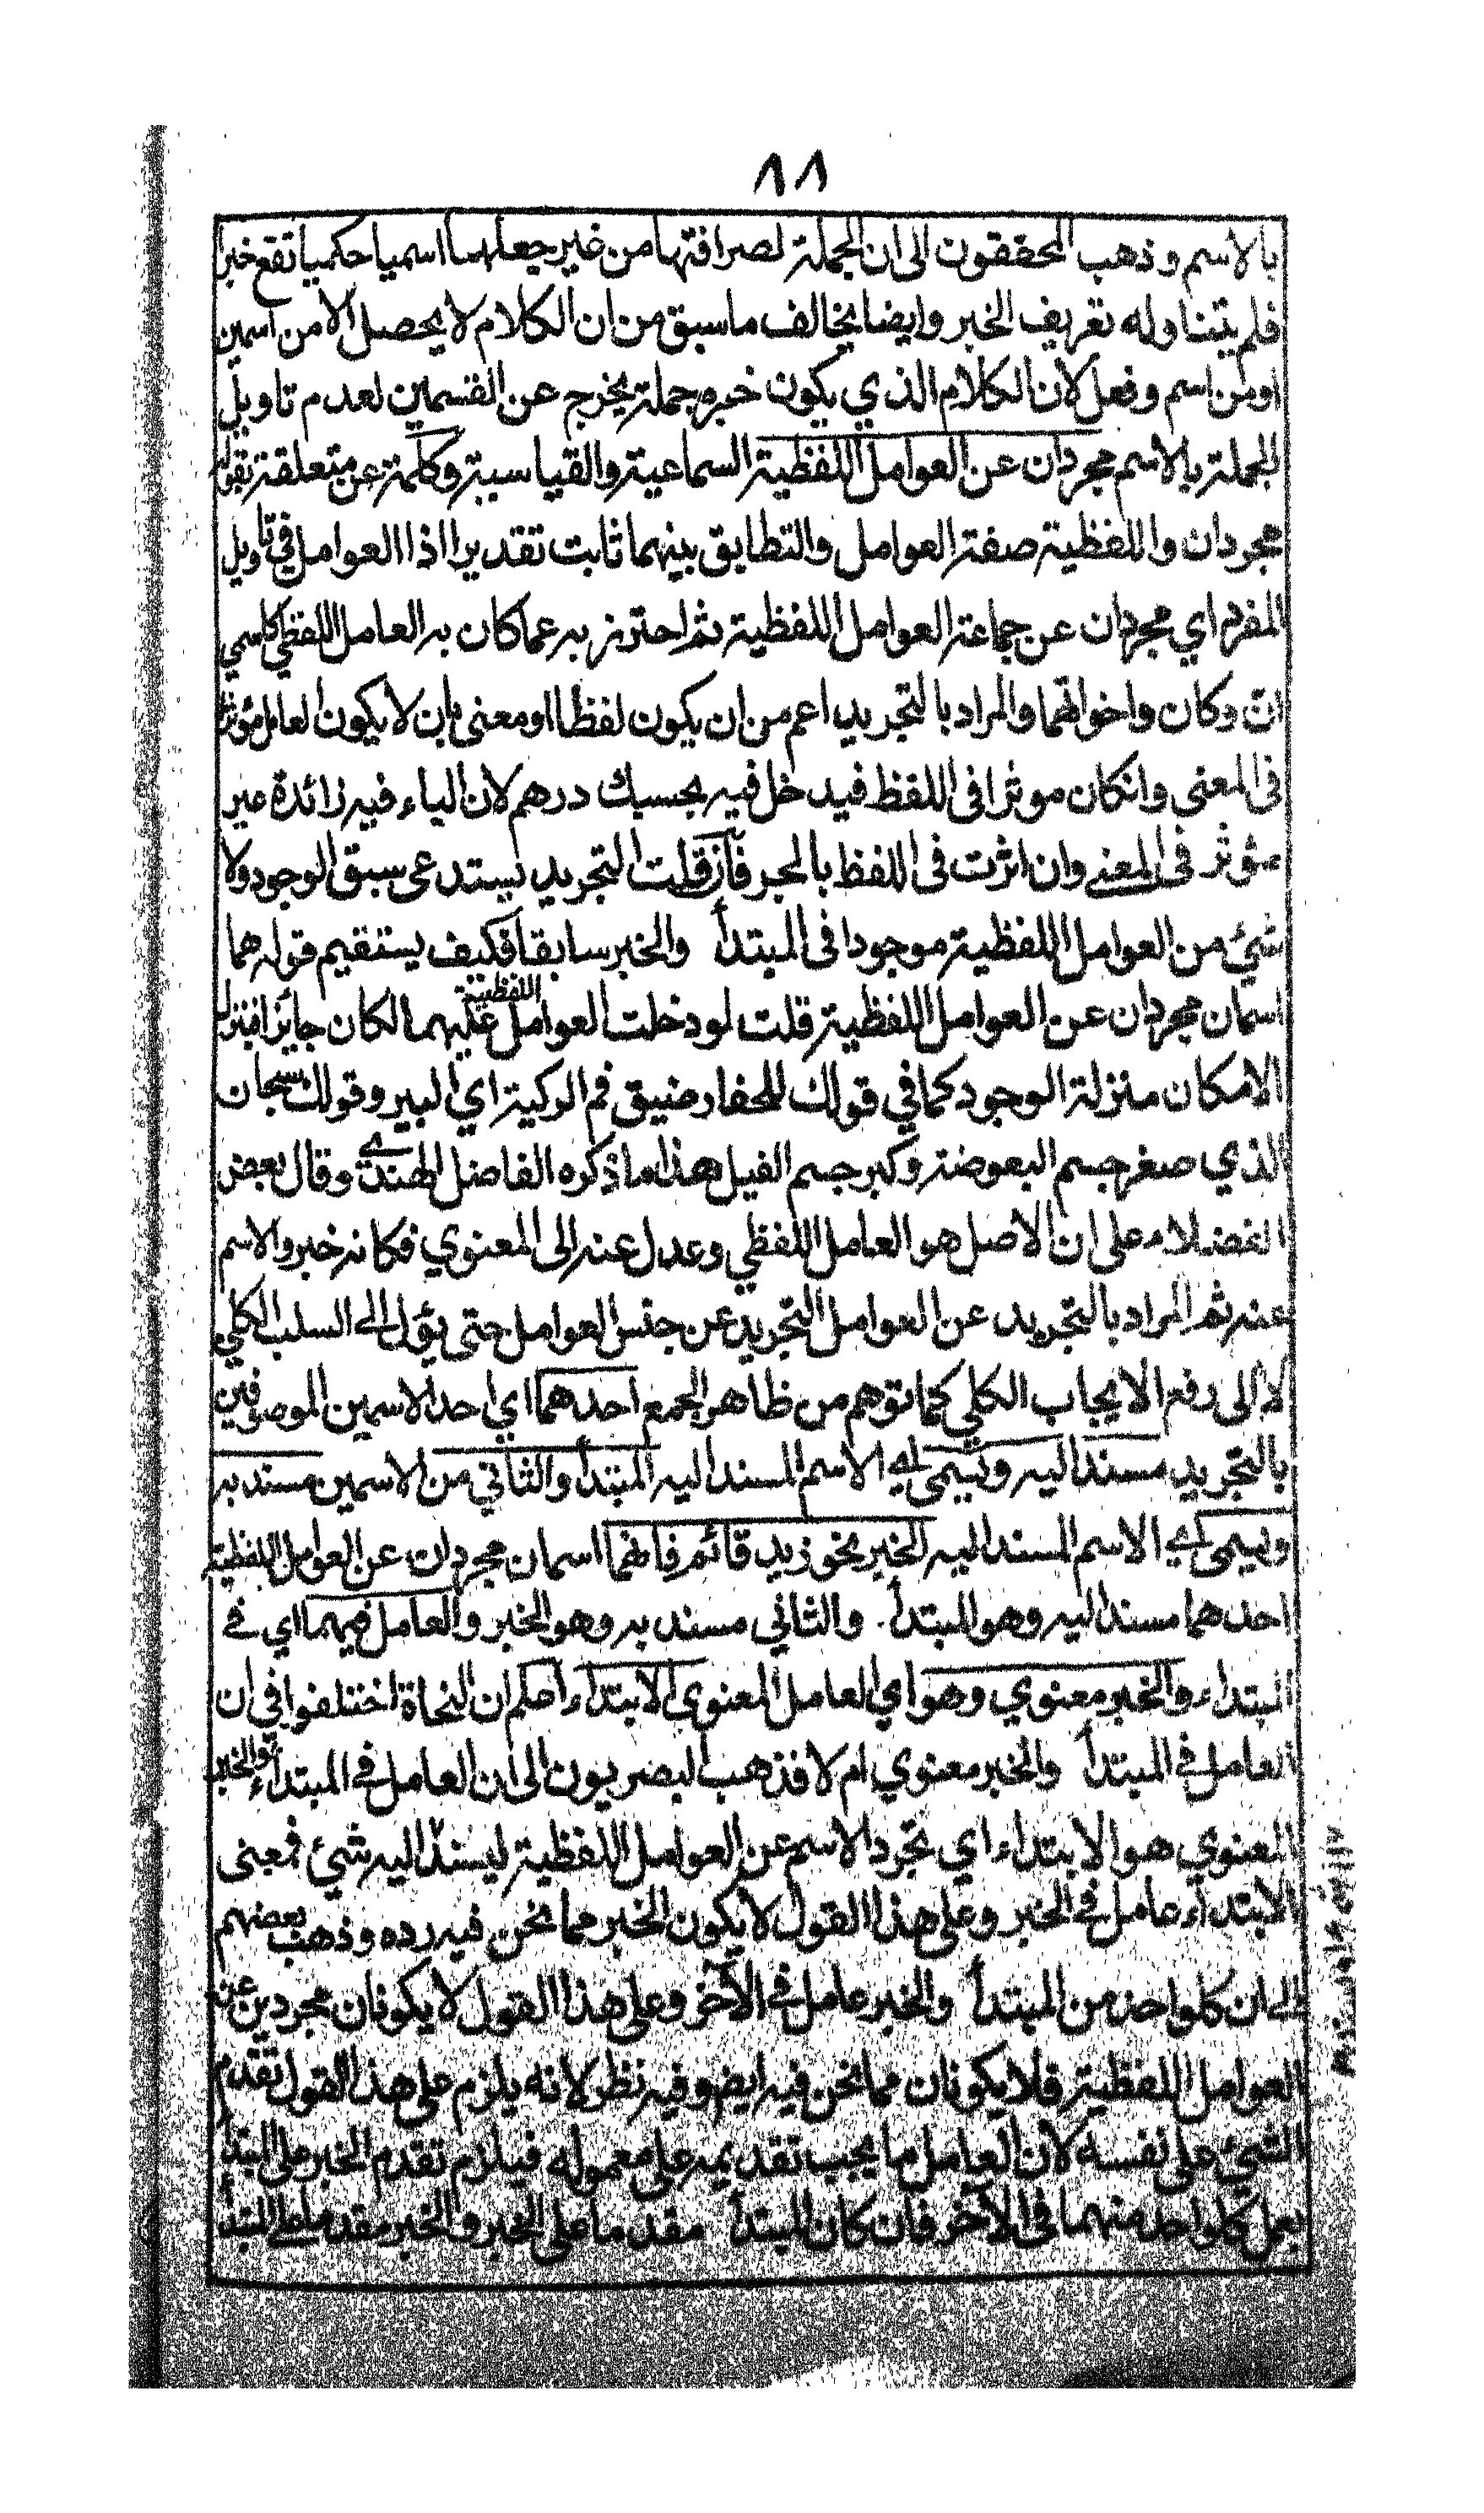 ٨٨
بالاسم وذهب المحققون الى ان الجملة لصرافتها من غير جعلها اسميا حكميا تقع خبرا
فلم يتناوله تعريف الخبر وايضا يخالف ما سبق من ان الكلام لا يحصل الا من اسمين
اومن اسم وفعل لان الكلام الذي يكون خبره جملة يخرج عن القسمين لعدم تاويل
الجملة بالاسم مجردان عن العوامل اللفظية السماعية والقياسية وكلمة عن متعلقة بقوله
مجردان واللفظية صفة العوامل والتطابق بينهما ثابت تقديرا اذا العوامل في تاويل
المفرد اي مجردان عن جماعة العوامل اللفظية ثم احترز به عما كان به العامل اللفظي كاسمي
ان وكان واخواتهما والمراد بالتجريد اعم من ان يكون لفظا او معنى بان لا يكون العامل مؤثرا
فى المعنى وانكان موثرا فى اللفظ فيدخل فيه بحسبك درهم لان الباء فيه زائدة غير
مؤثر فى المعنى وان اثرت فى اللفظ بالجر فان قلت التجريد يستدعى سبق الوجود ولا
شئ من العوامل اللفظية موجودا فى المبتدأ والخبر سابقا فكيف يستقيم قوله هما
اسمان مجردان عن العوامل اللفظية قلت لو دخلت العوامل اللفظية عليهما لكان جايزا فنزل
الامكان منزلة الوجود كما في قولك للحفار ضيق فم الركية اي البير وقولك سبحان
الذي صغر جسم البعوضة وكبر جسم الفيل هذا ما ذكره الفاضل الهندي وقال بعض
الفضلاء على ان الاصل هو العامل اللفظي وعدل عنه الى المعنوي فكانه خبر والاسم
عنه ثم المراد بالتجريد عن العوامل التجريد عن جنس العوامل حتى يؤل الى السلب الكلي
لا الى رفع الايجاب الكلي كما توهم من ظاهر الجمع احدهما اي احد الاسمين الموصوفين
بالتجريد مسندا اليه ويسمى اي الاسم المسند اليه المبتدأ والثاني من الاسمين مسند به
ويسمى اي الاسم المسند اليه الخبر نحو زيد قائم فانهما اسمان مجردان عن العوامل اللفظية
احدهما مسند اليه وهو المبتدأ والثاني مسند به وهو الخبر والعامل فيهما اي في
المبتداء والخبر معنوي وهو اي العامل المعنوي الابتداء اعلم ان النحاة اختلفوا في ان
العامل في المبتدأ والخبر معنوي ام لا فذهب البصريون الى ان العامل في المبتداء والخبر
المعنوي هو الابتداء اي تجرد الاسم عن العوامل اللفظية ليسند اليه شئ فمعنى
الابتداء عامل في الخبر وعلى هذا القول لا يكون الخبر مما نحن فيه رده وذهب بعضهم
الى ان كلواحد من المبتدأ والخبر عامل في الآخر وعلى هذا القول لا يكونان مجردين عن
العوامل اللفظية فلا يكونان مما نحن فيه ايضا وفيه نظر لانه يلزم على هذا القول تقدم
الشئ على نفسه لان العامل ما يجب تقديمه على معموله فيلزم تقدم الخبر على المبتدأ
بعمل كلواحد منهما فى الآخر فان كان المبتدأ مقدما على الخبر والخبر مقدما على المبتدأ